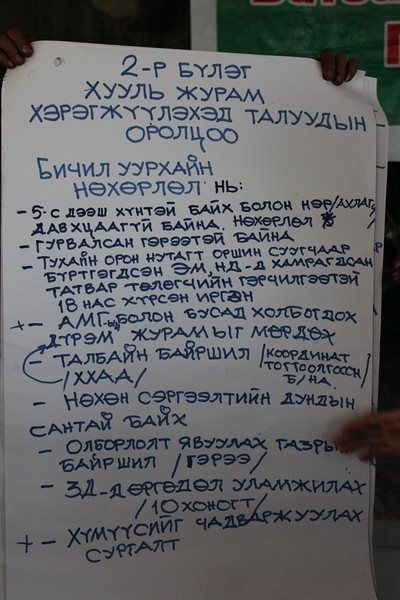 2-Р БҮЛЭГ
ХУУЛЬ ЖУРАМ
ХЭРЭГЖҮҮЛЭХЭД ТАЛУУДЫН
ОРОЛЦОО
БИЧИЛ УУРХАЙН
НӨХӨРЛӨЛ НЬ:
- 5-С ДЭЭШ ХҮНТЭЙ БАЙХ БОЛОН НӨР/АХЛАГЧ/
ДАВХЦААГҮЙ БАЙНА. НӨХӨРЛӨЛ
- ГУРВАЛСАН ГЭРЭЭТЭЙ БАЙНА
- ТУХАЙН ОРОН НУТАГТ ОРШИН СУУГЧААР
БҮРТГЭГДСЭН ЭМ, НД-Д ХАМРАГДСАН
ТАТВАР ТӨЛӨГЧИЙН ГЭРЧИЛГЭЭТЭЙ
18 НАС ХҮРСЭН ИРГЭН
+ - АМГ-ЫН БОЛОН БУСАД ХОЛБОГДОХ
ДҮРЭМ ЖУРАМЫГ МӨРДӨХ
- ТАЛБАЙН БАЙРШИЛ /КООРДИНАТ
ТОГТООЛГОСОН
/ХХАА/ Б/НА
- НӨХӨН СЭРГЭЭЛТИЙН ДУНДЫН
САНТАЙ БАЙХ
- ОЛБОРЛОЛТ ЯВУУЛАХ ГАЗРЫН
БАЙРШИЛ /ГЭРЭЭ/
- ЗД-Д ӨРГӨДӨЛ УЛАМЖИЛАХ
/10 ХОНОГТ/
+ - ХҮМҮҮСИЙГ ЧАДВАРЖУУЛАХ
СУРГАЛТ